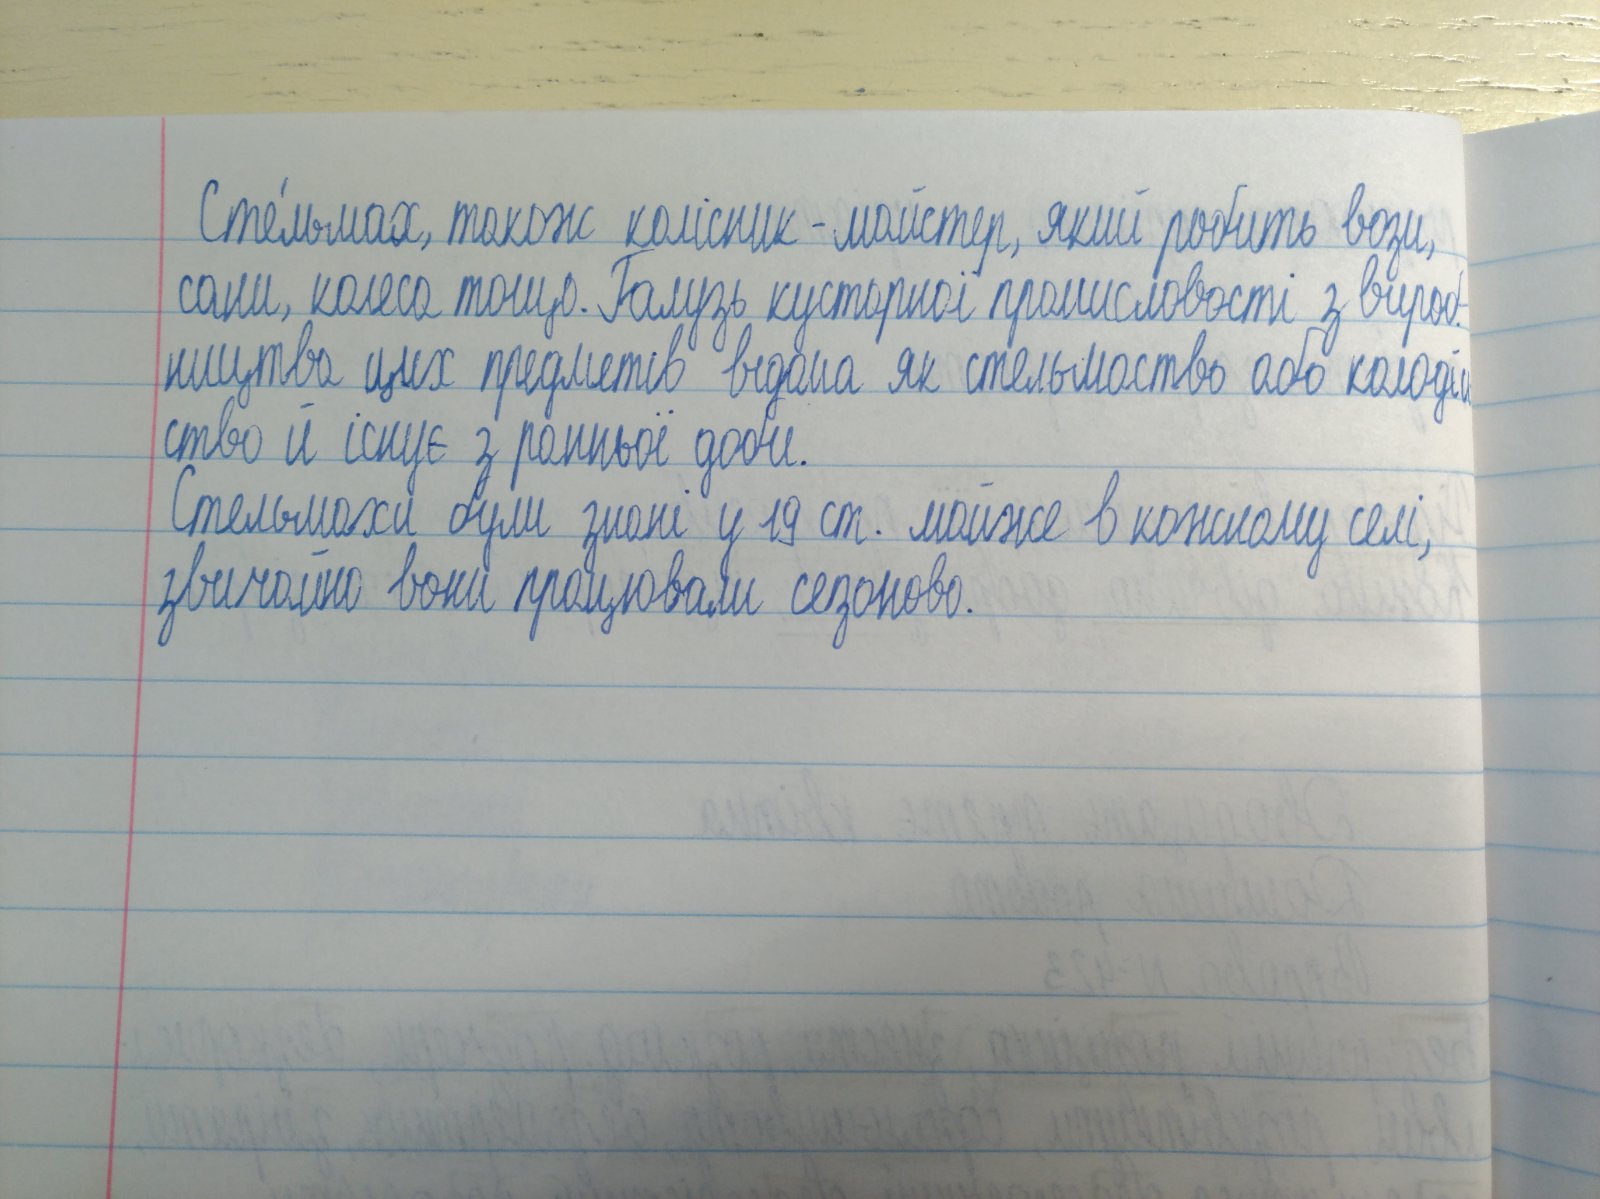 Сте́льмах, також колісник - майстер, який робить вози,
сани, колеса тощо. Галузь кустарної промисловості з вироб-
ництва цих предметів відома як стельмаство або колодій
ство й існує з ранньої доби.
Стельмахи були знані у 19 ст. майже в кожному селі,
звичайно вони працювали сезоново.